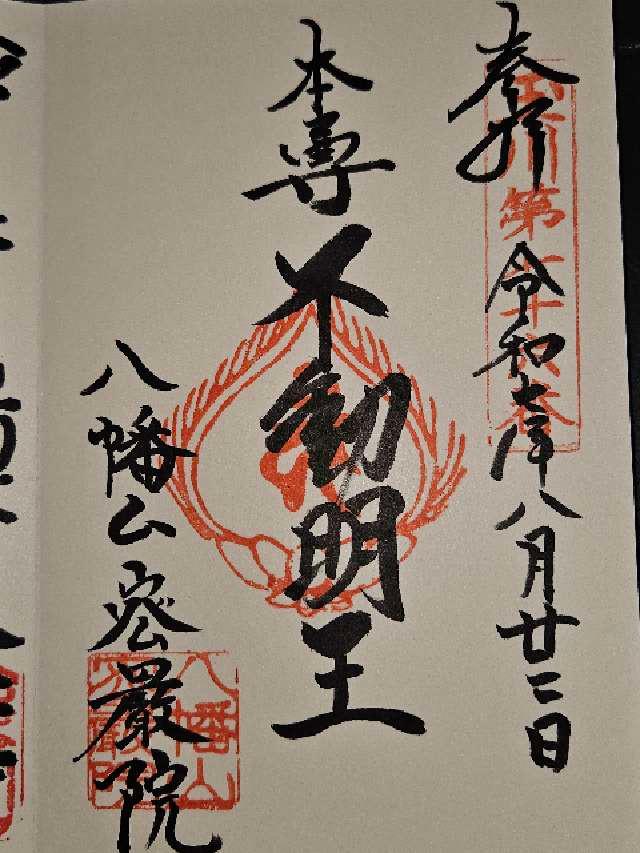 奉拝
令和七年八月廿二日
本尊
不動明王
八幡山密厳院
玉川第六十八番
八幡山
密厳院